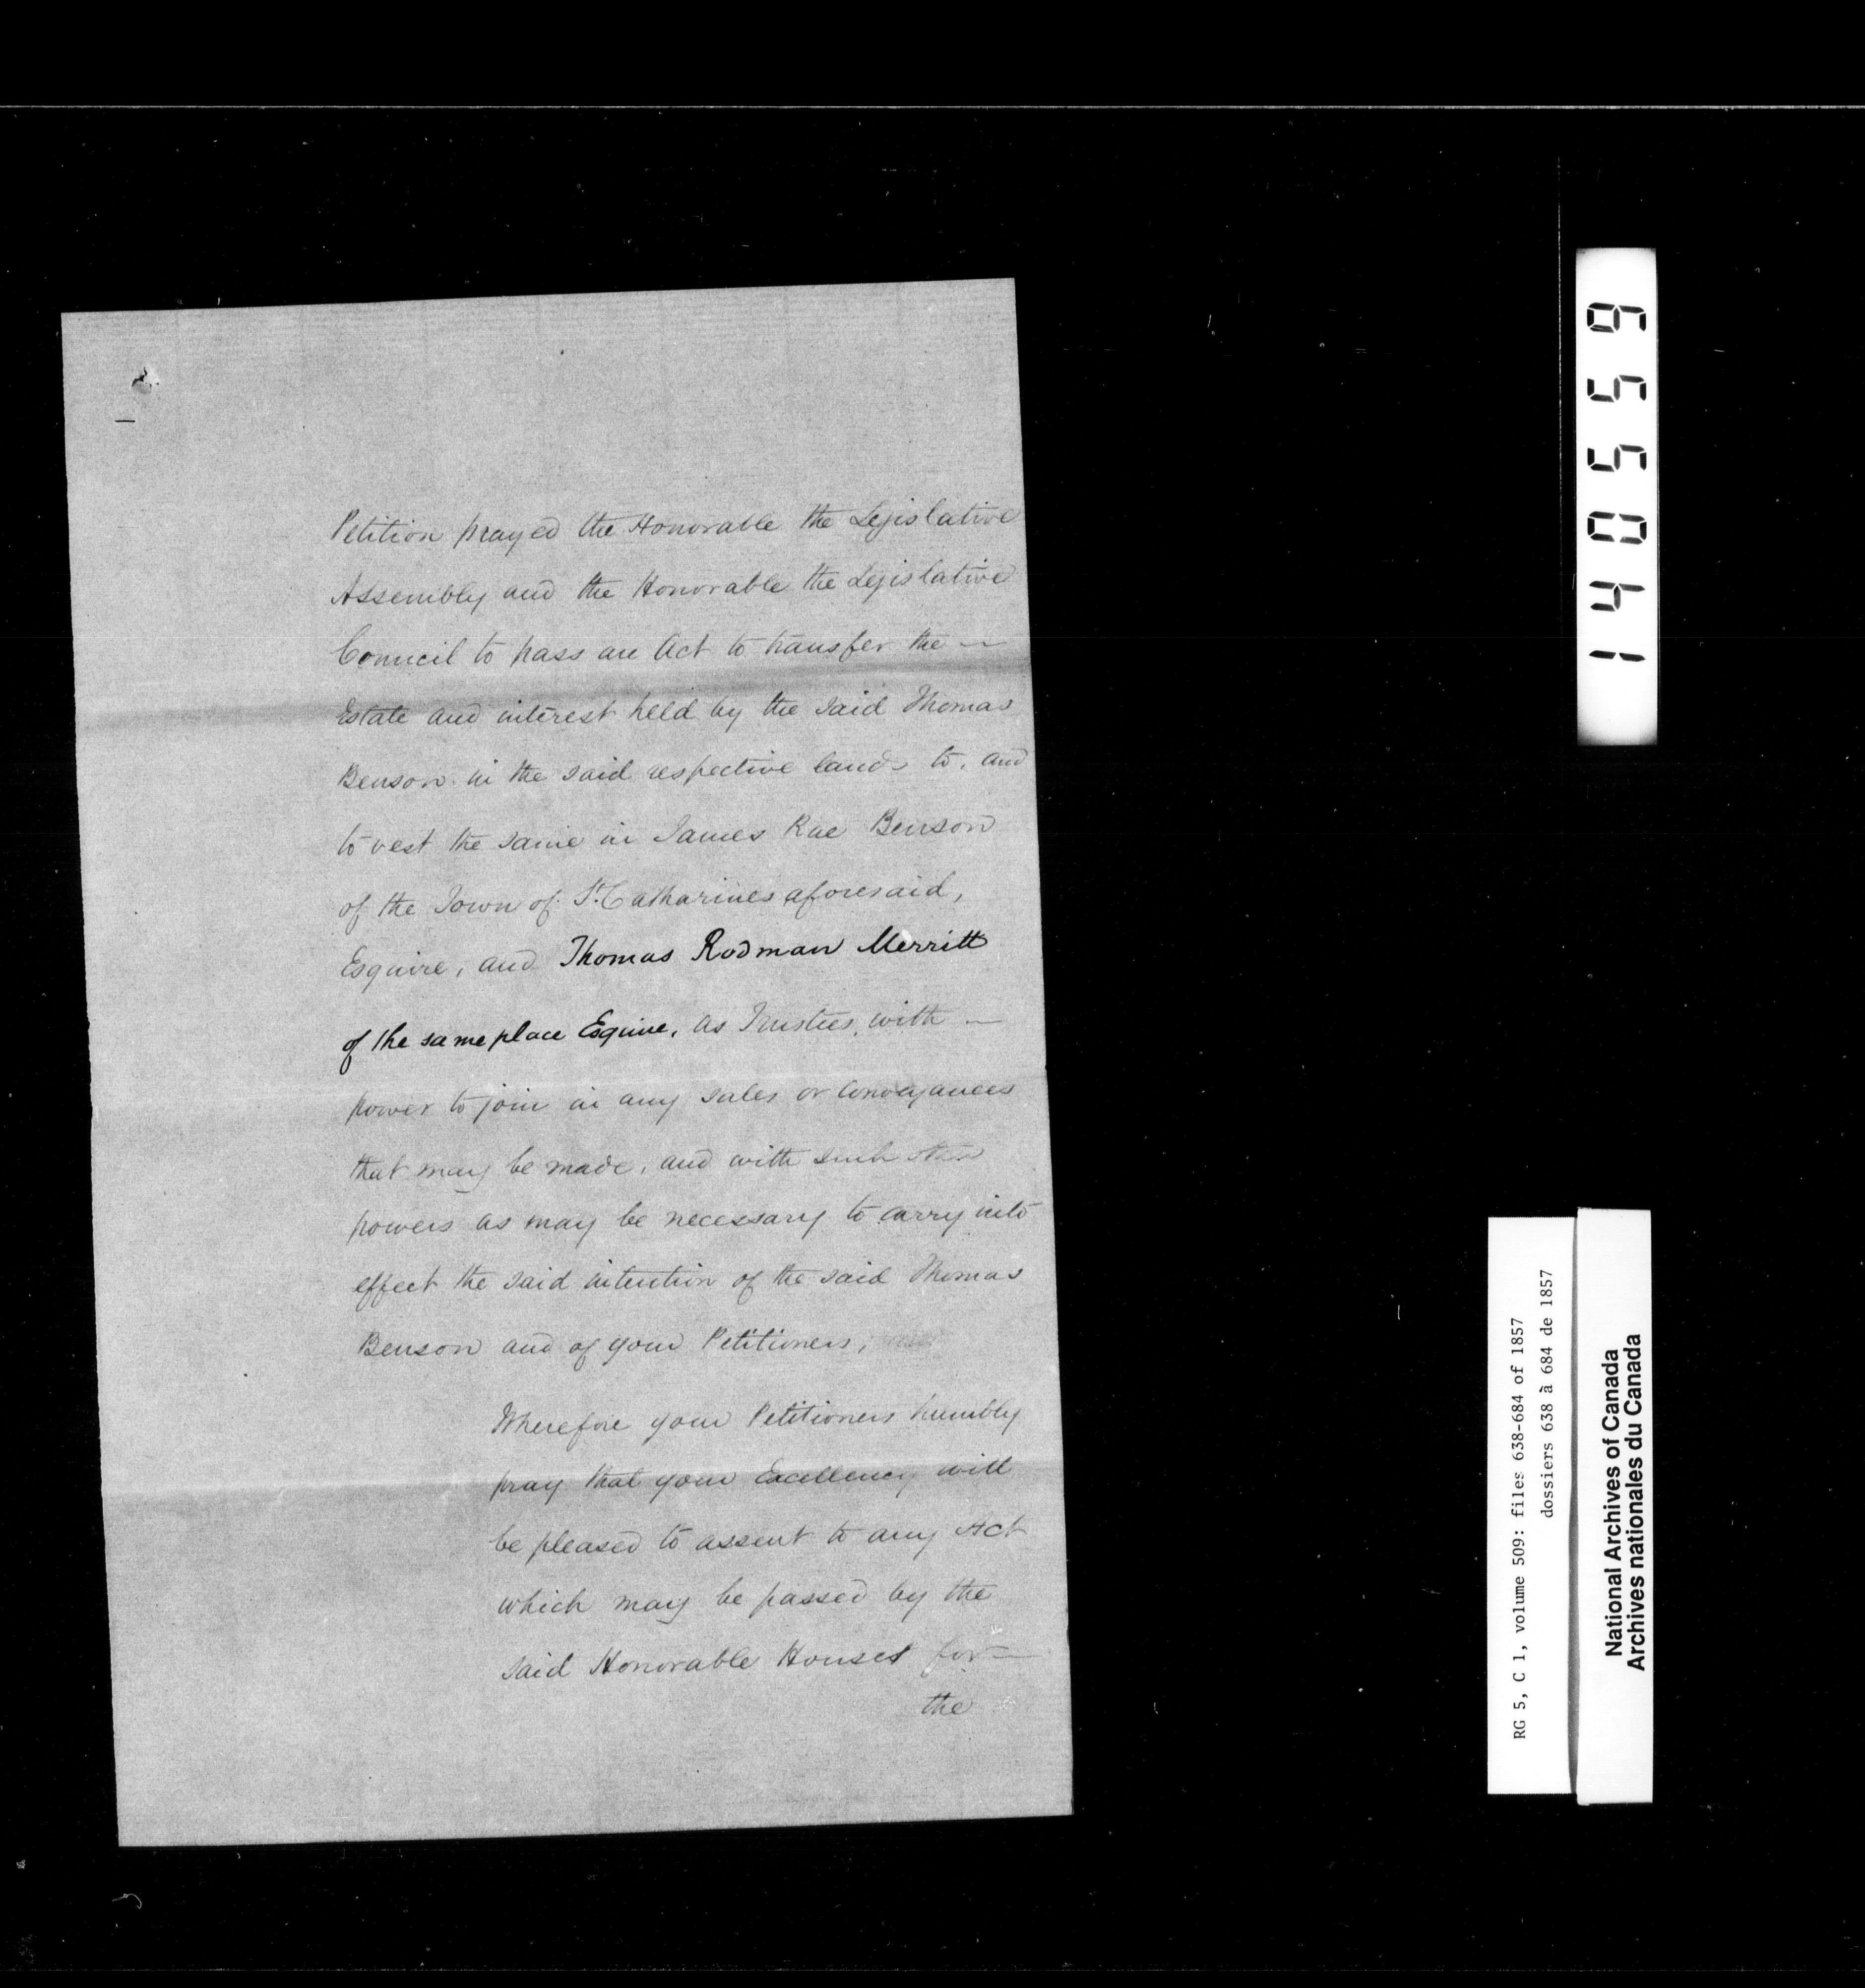 Petition prayed the Honorable the Legislative
Assembly and the Honorable the Legislative
Council to pass an Act to transfer the —
Estate and interest held by the said Thomas
Benson in the said respective lands to, and
to vest the same in James Rae Benson
of the Town of St. Catharines aforesaid,
Esquire, and Thomas Rodman Merritt
of the same place Esquire, as Trustees, with —
power to join in any sales or conveyances
that may be made, and with such other
powers as may be necessary to carry into
effect the said intention of the said Thomas
Benson and of your Petitioners,
Wherefore your Petitioners humbly
pray that your Excellency will
be pleased to assent to any Act
which may be passed by the
said Honorable Houses for —
the
140559
RG 5, C 1, volume 509: files 638-684 of 1857
dossiers 638 à 684 de 1857
National Archives of Canada
Archives nationales du Canada